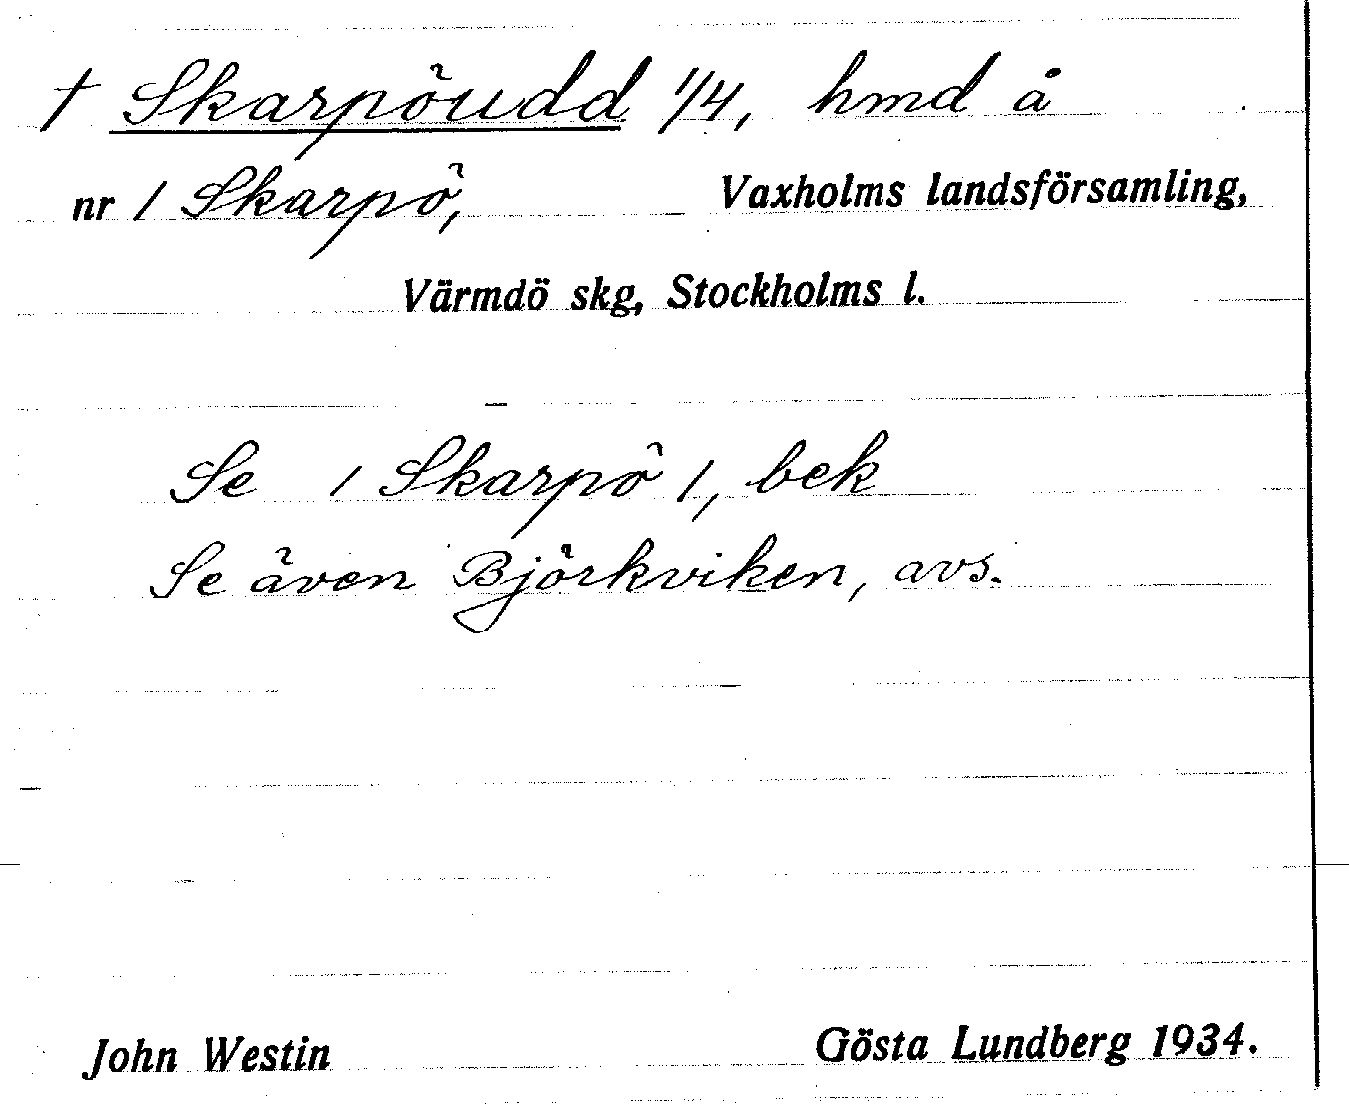 † Skarpöudd 1/4, hmd å
nr 1 Skarpö, Vaxholms landsförsamling,
Värmdö skg, Stockholms l.
Se 1 Skarpö 1, bek
Se även Björkviken, avs.
John Westin Gösta Lundberg 1934.